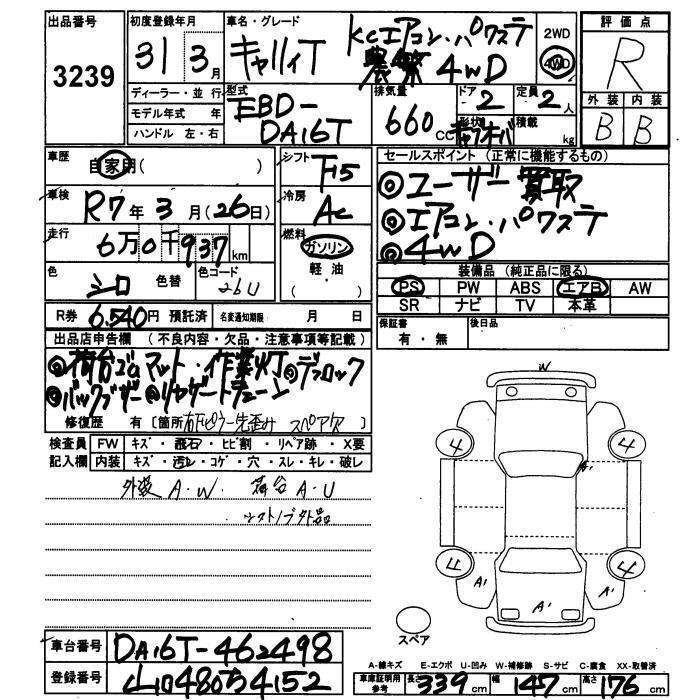 出品番号 3239
初度登録年月 31 3月
車名・グレード キャリィT KCエアコン・パワステ 農繁 4WD
2WD 4WD
評価点 R
外装 内装
B B
ディーラー・並行
モデル年式 年
ハンドル 左・右
型式 EBD-DA16T
排気量 660 CC
ドア 2
定員 2人
形状 積載 kg
車歴 自家用( )
シフト F5
セールスポイント (正常に機能するもの)
◎ユーザー買取
◎エアコン・パワステ
◎4WD
車検 R7年3月(26日)
冷房 AC
走行 6万0千937km
燃料 ガソリン
軽油
( )
色 シロ 色替
色コード 26U
装備品 (純正品に限る)
PS PW ABS エアB AW
SR ナビ TV 本革
R券 6.540円 預託済 名変通知期限 月 日
保証書 有・無
後日品
出品店申告欄 (不良内容・欠品・注意事項等記載)
◎荷台ゴムマット・作業灯◎デフロック
◎バックブザー◎リヤゲートチェーン
修復歴 有 [箇所 右Fピラー先歪み スペア欠 ]
検査員記入欄
FW キズ・飛石・ヒビ割・リペア跡・X要
内装 キズ・汚レ・コゲ・穴・スレ・キレ・破レ
外装 A・W 荷台 A・U
シフトノブ外品
W
4 4
A'
4 4
A' A' A'
スペア
車台番号 DA16T-462498
A-線キズ E-エクボ U-凹み W-補修跡 S-サビ C-腐食 XX-取替済
登録番号
車庫証明用参考 長さ 339cm 幅 147cm 高さ 176cm